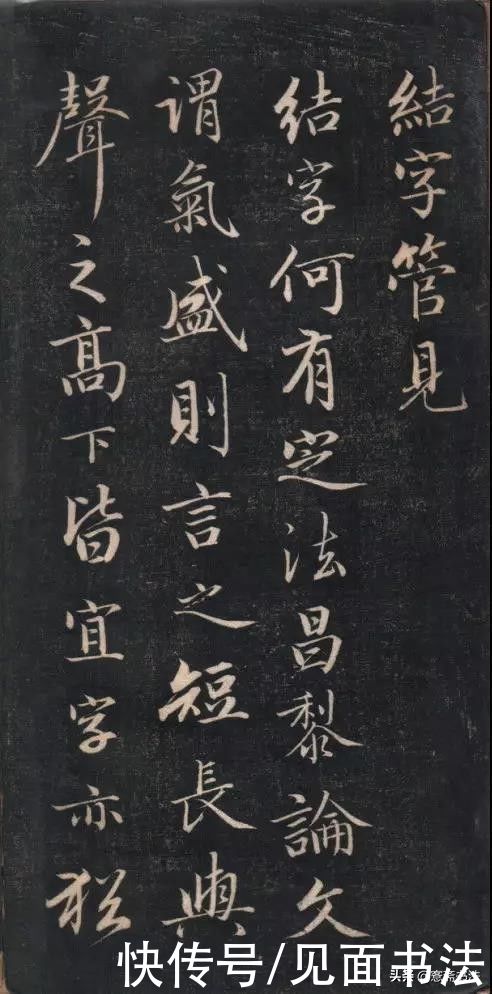 結字管見
結字何有定法昌黎論文
謂氣盛則言之短長與
聲之高下皆宜字亦猶
快传号/见面书法
头条@意斋书法